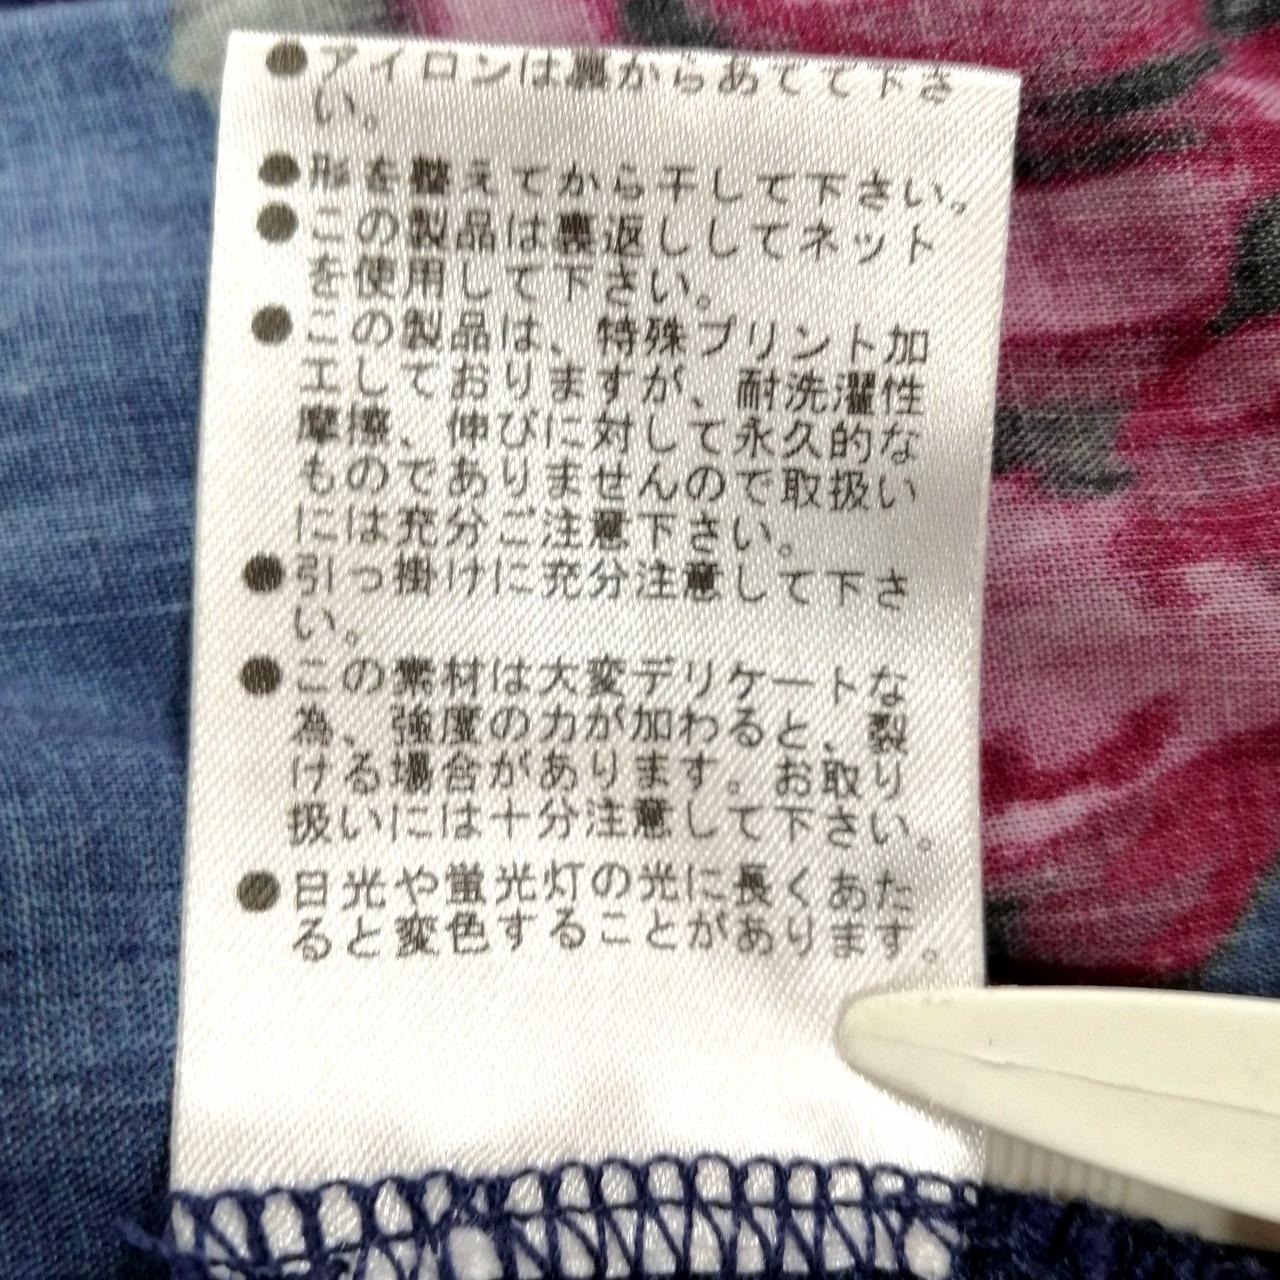 ●アイロンは裏からあてて下さ
い。
●形を整えてから干して下さい。
●この製品は裏返ししてネット
を使用して下さい。
●この製品は、特殊プリント加
工しておりますが、耐洗濯性
摩擦、伸びに対して永久的な
ものでありませんので取扱い
には充分ご注意下さい。
●引っ掛けに充分注意して下さ
い。
●この素材は大変デリケートな
為、強度の力が加わると、裂
ける場合があります。お取り
扱いには十分注意して下さい。
●日光や蛍光灯の光に長くあた
ると変色することがあります。